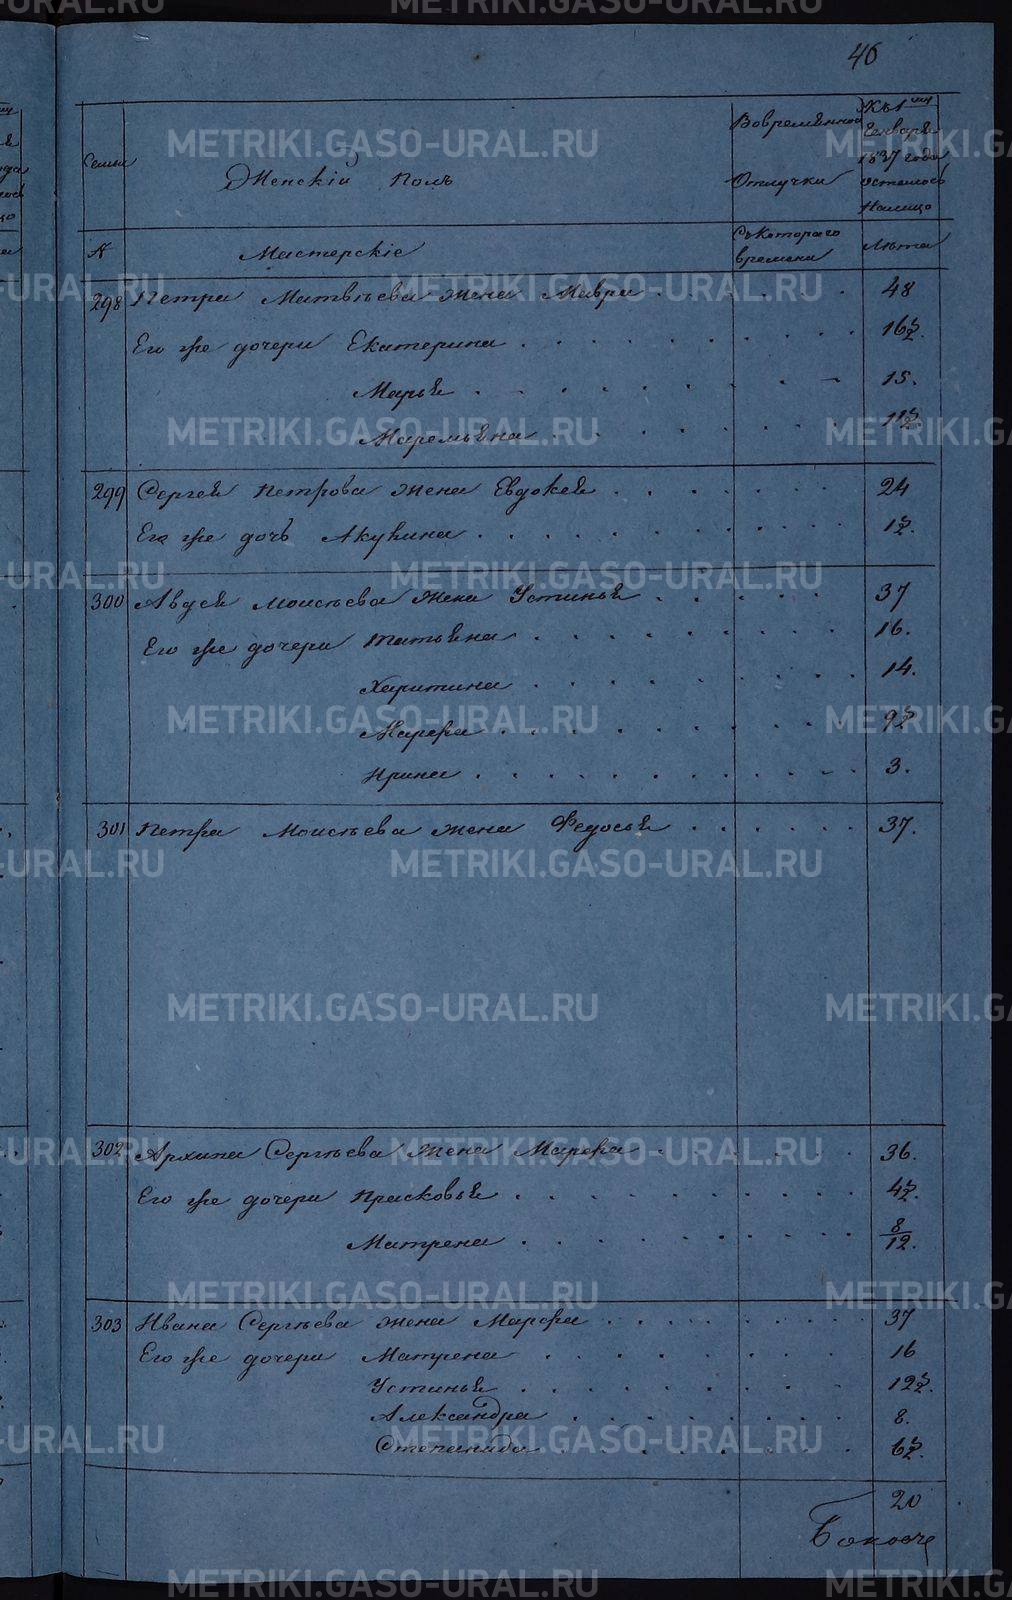 46
Семьи
Женскій полъ
Вовременной Отлучки
Къ 1му Генваря 1837 года осталось Налицо
№
Мастерскіе
Съкотораго времени
Лѣта
298 Петра Матвѣева жена Мавра 48
Его же дочери Екатерина 16½.
Марья 15.
Маремьяна 11½
299 Сергея Петрова жена Евдокея 24
Его же дочь Акулина 1½.
300 Авдея Моисѣева жена Устинья 37
Его же дочери Татьяна 16.
Харитина 14.
Марфа 9½
Ирина 3.
301 Петра Моисѣева жена Федосья 37.
302 Архипа Сергѣева жена Марфа 36.
Его же дочери Прасковья 4½.
Матрена 8/12.
303 Ивана Сергѣева жена Марфа 37
Его же дочери Матрена 16
Устинья 12½.
Александра 8.
Степанида 6½.
20
METRIKI.GASO-URAL.RU